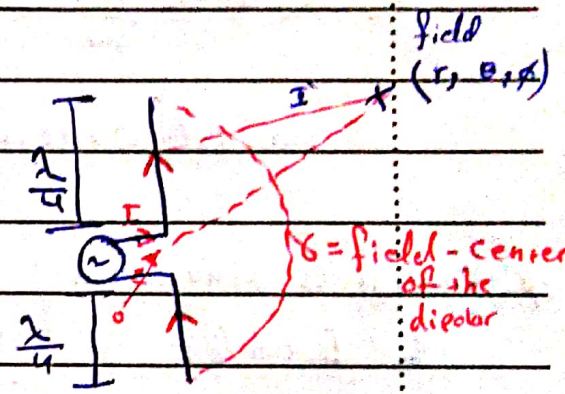 field
(r, θ, ϕ)
I
λ/4
I
~
r = field - center
of the
dipolar
o
λ/4